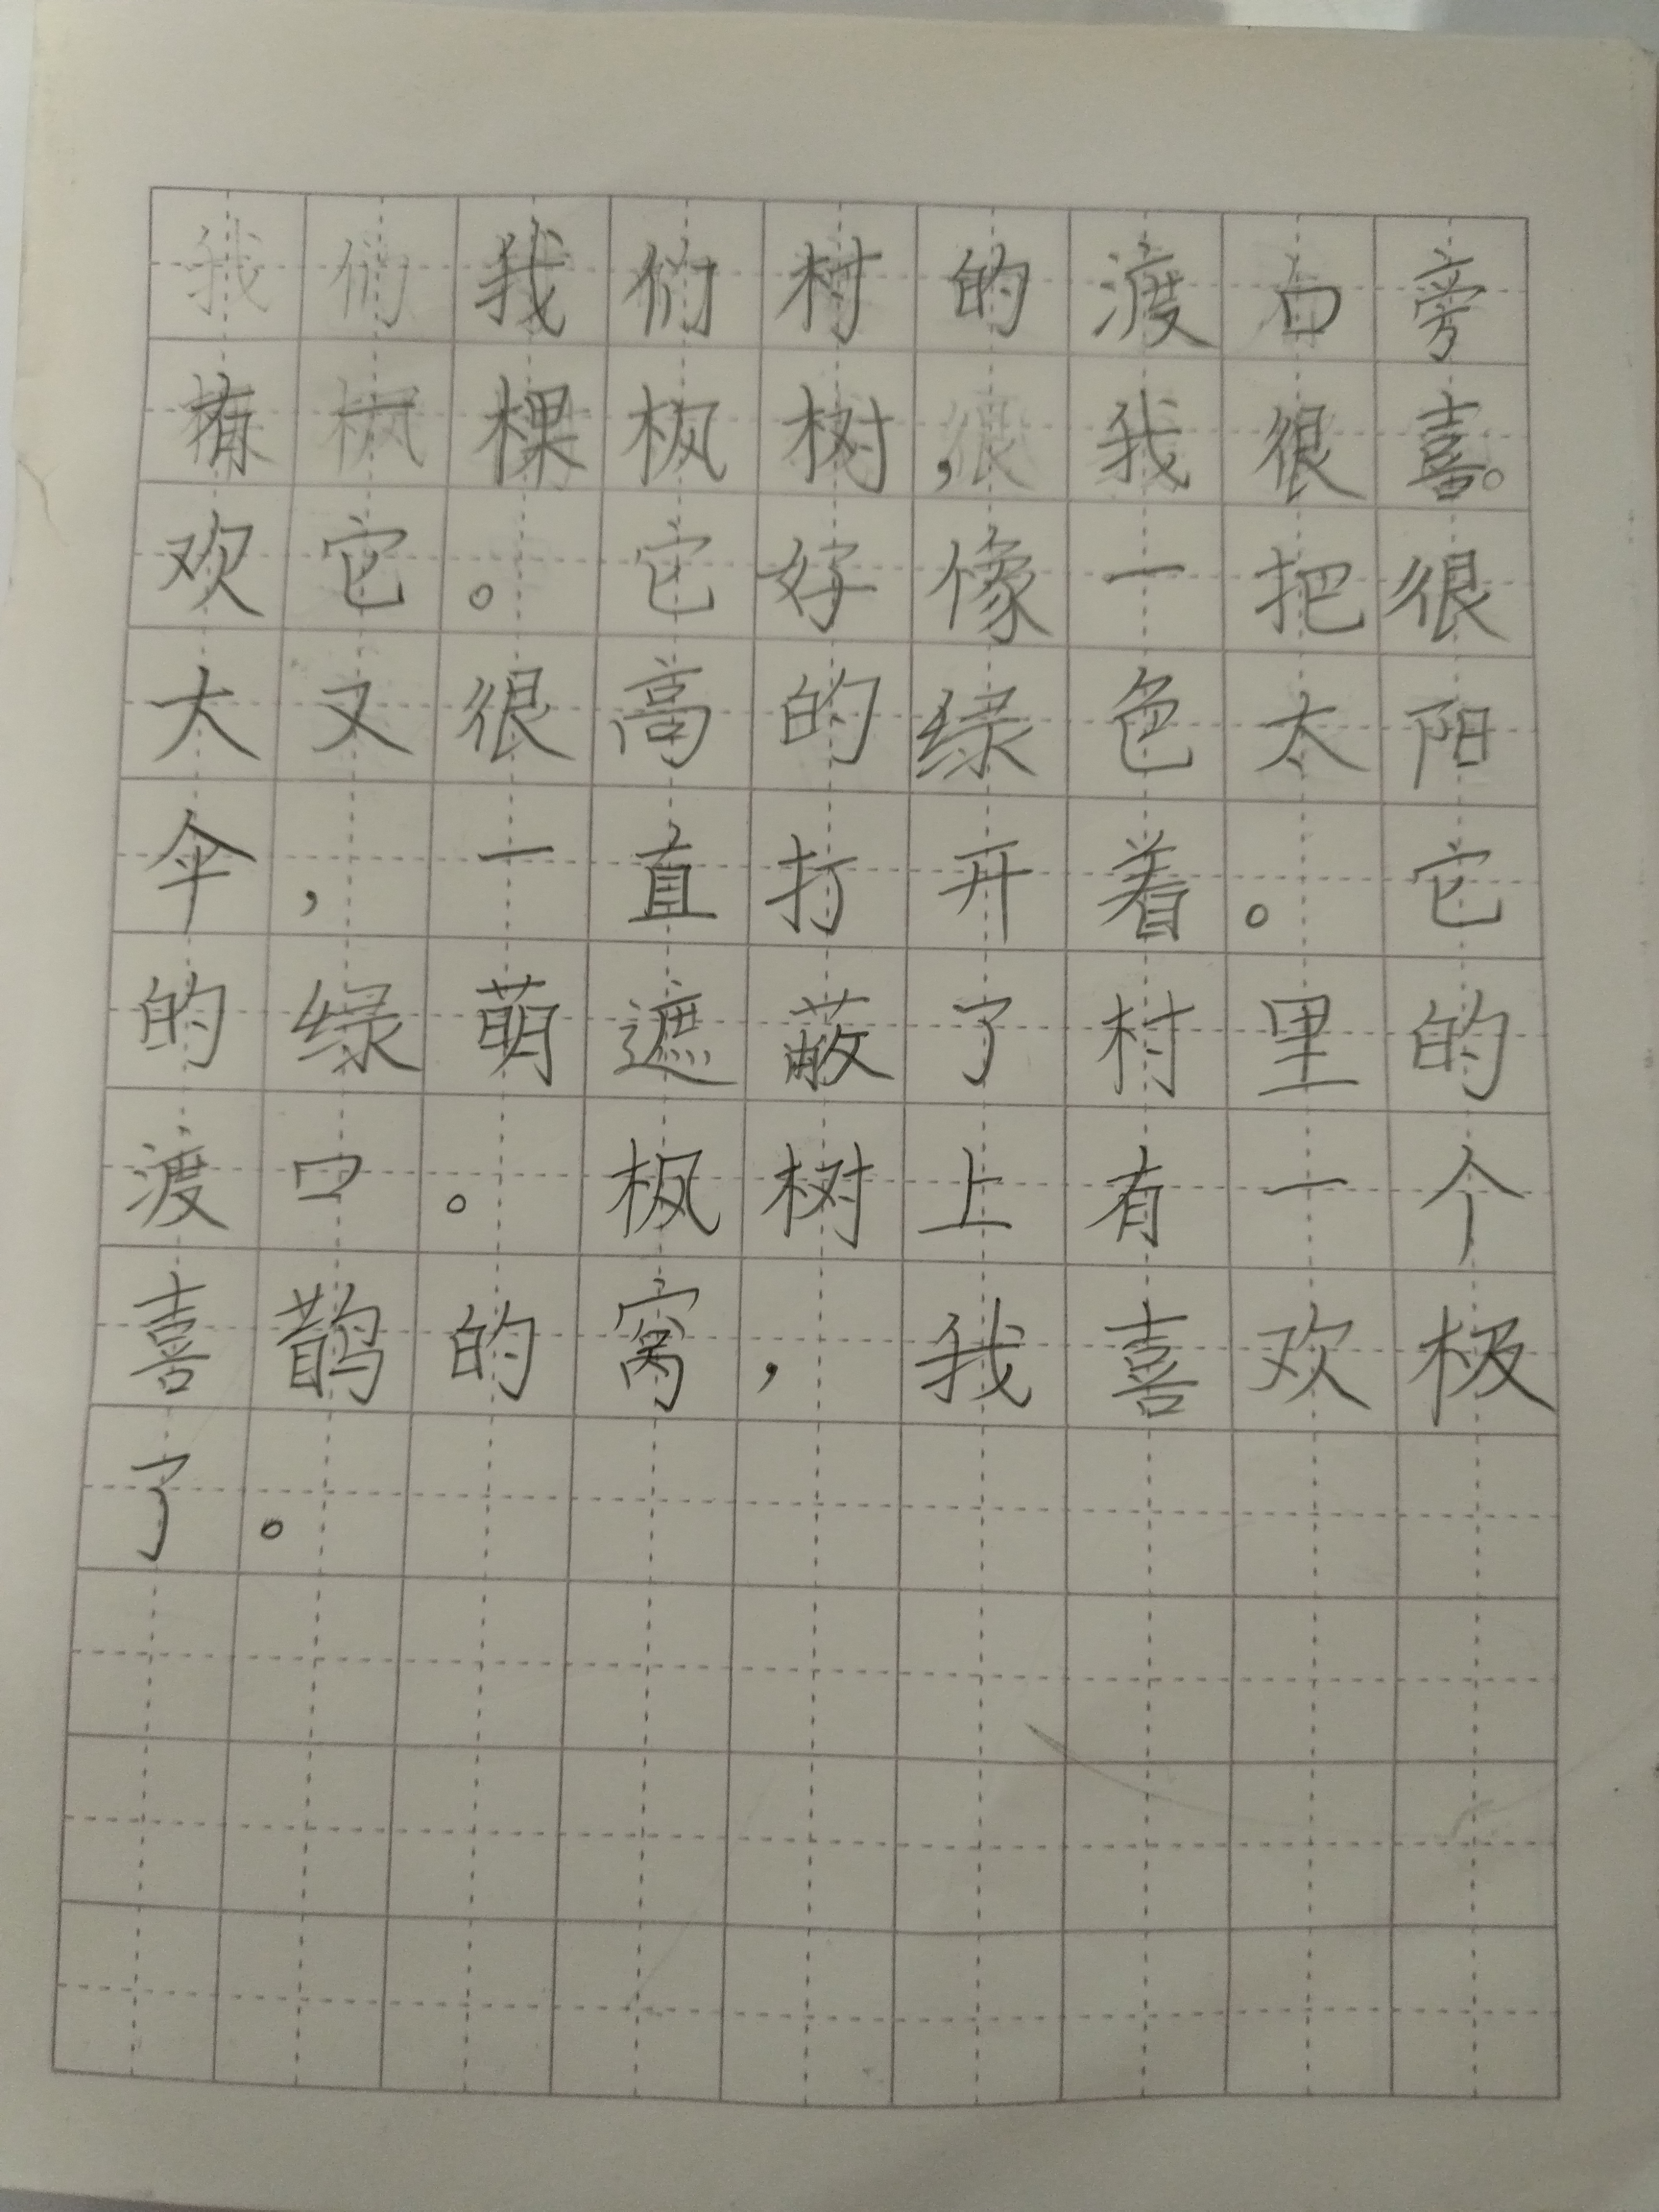 我们村的渡口旁
有一棵枫树，我很喜。
欢它。它好像一把很
大又很高的绿色太阳
伞，一直打开着。它
的绿萌遮蔽了村里的
渡口。枫树上有一个
喜鹊的窝，我喜欢极
了。